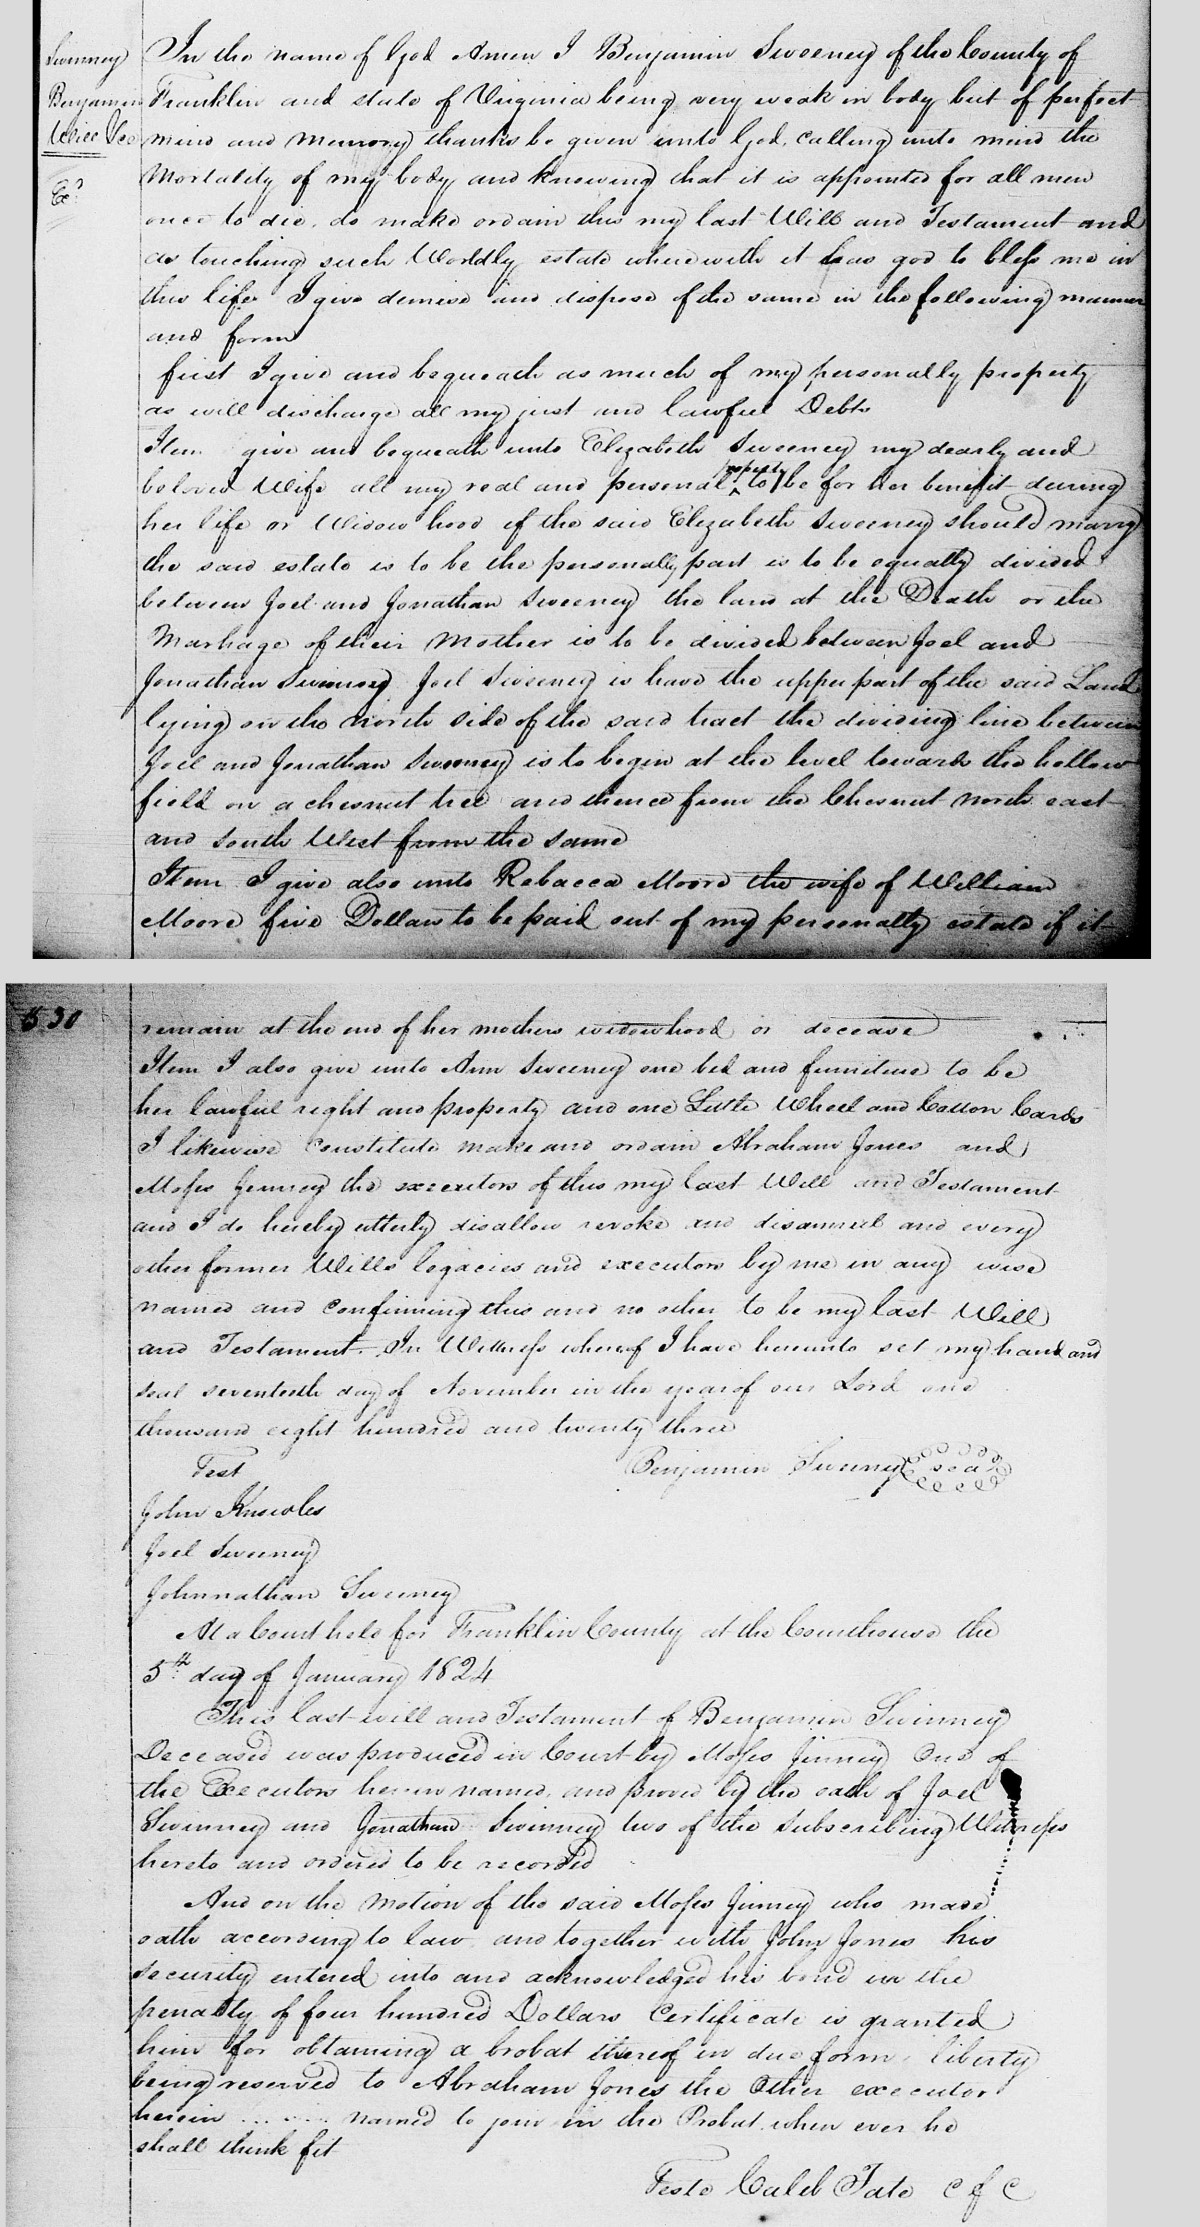 Swinney
Benjamin
Will Rec
Ex.r
In the name of God Amen I Benjamin Sweeney of the County of
Franklin and state of Virginia being very weak in body but of perfect
mind and memory thanks be given unto God, calling unto mind the
Mortality of my body and knowing that it is appointed for all men
once to die, do make ordain this my last Will and Testament and
as touching such Worldly estate wherewith it has god to bless me in
this life I give demise and dispose of the same in the following manner
and form
first I give and bequeath as much of my personally property
as will discharge all my just and lawful Debts
Item give and bequeath unto Elizabeth Sweeney my dearly and
property
beloved Wife all my real and personal ^ to be for her benefit during
her life or Widow hood if the said Elizabeth Sweeney should marry
the said estate is to be the personally part is to be equally divided
between Joel and Jonathan Sweeney the land at the Death or the
Marriage of their Mother is to be divided between Joel and
Jonathan Swinney Joel Sweeney is have the upper part of the said Land
lying on the north side of the said tract the dividing line between
Joel and Jonathan Sweeney is to begin at the level towards the hollow
field on a chesnut tree and thence from the Chesnut north east
and South West from the same
Item I give also unto Rebacca Moore the wife of William
Moore five Dollars to be paid out of my personally estate if it
530
remain at the end of her mothers widowhood or decease
Item I also give unto Ann Sweeney one bed and furniture to be
her lawful right and property and one Little Wheel and Cotton Cards
I likewise constitute make and ordain Abraham Jones and
Moses Jinney the executors of this my last Will and Testament
and I do hereby utterly disallow revoke and disannul and every
other former Wills legacies and executors by me in any wise
named and confirming this and no other to be my last Will
and Testament. In Wittness whereof I have hereunto set my hand and
seal seventeeth day of November in the year of our Lord one
thousand eight hundred and twenty three
Test
Benjamin Sweeney seal
John Knowles
Joel Sweeney
Johnnathan Sweeney
At a Court held for Franklin County at the Courthouse the
5th day of January 1824
This last will and Testament of Benjamin Swinney
Deceased was produced in Court by Moses Jinney One of
the Executors herein named, and proved by the oath of Joel
Swinney and Jonathan Swinney two of the Subscribing Witnesses
hereto and ordered to be recorded
And on the motion of the said Moses Jinney who made
oath according to law and together with John Jones his
security entered into and acknowledged his bond in the
penalty of four hundred Dollars Certificate is granted
him for obtaining a probat thereof in due form, liberty
being reserved to Abraham Jones the Other executor
herein ... ... named to join in the Probat when ever he
shall think fit
Teste Caleb Tate C f C